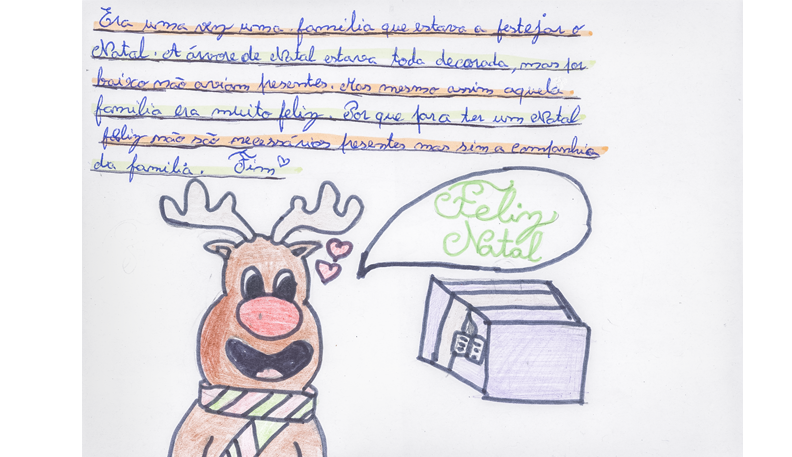 Era uma vez uma família que estava a festejar o
Natal. A árvore de Natal estava toda decorada, mas por
baixo não aviam presentes. Mas mesmo assim aquela
família era muito feliz. Por que para ter um Natal
feliz não são necessários presentes mas sim a companhia
da família. Fim
Feliz
Natal